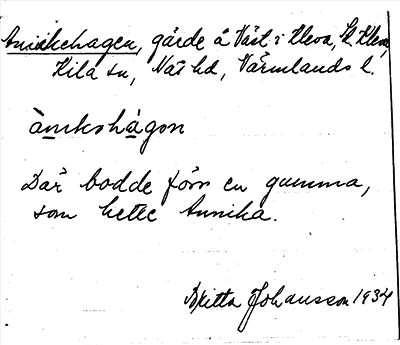 Annikehagen, gärde å Väst i Kleva, St. Kleva,
Kila sn, Näs hd, Värmlands l.
ànikəhàgən
Där bodde förr en gumma,
som hette Annika.
Britta Johansson 1934